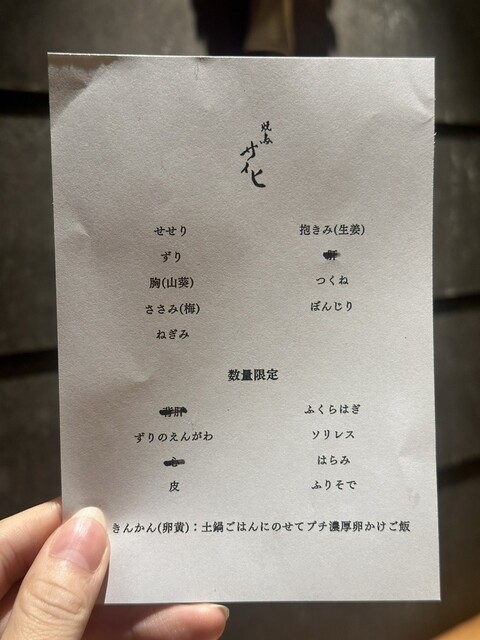 焼鳥
サイヒ
せせり
ずり
胸(山葵)
ささみ(梅)
ねぎみ
抱きみ(生姜)
肝
つくね
ぼんじり
数量限定
背肝
ずりのえんがわ
心
皮
ふくらはぎ
ソリレス
はらみ
ふりそで
きんかん(卵黄)：土鍋ごはんにのせてプチ濃厚卵かけご飯